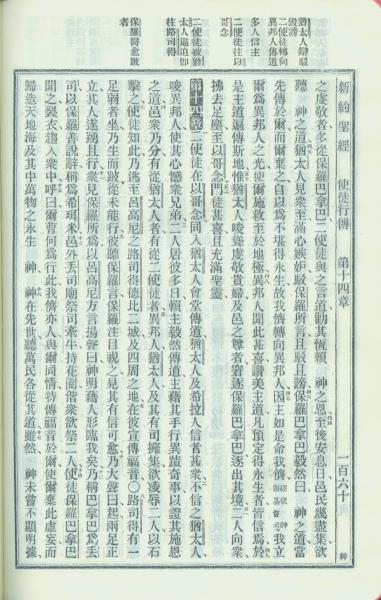 猶太人辯駁
毀謗
二使徒轉向
異邦人傳道
多人信主
二使徒往以
哥念
二使徒被猶
太人逼迫卽
往路司得
保羅醫愈跛
者
新約聖經 使徒行傳 第十四章 一百六十
之虔敬者多從保羅巴拿巴二使徒與之言道勸其恆賴 神之恩至後安息日邑民幾盡集欲
聽 神之道猶太人見衆至滿心嫉妒駁保羅所言且駁且謗保羅巴拿巴毅然曰 神之道當
先傳於爾而爾棄之自以爲不堪得永生故我儕轉向異邦人因主如是命我儕 我立
爾爲異邦人之光使爾施救至於地極異邦人聞此甚喜讚美主道凡預定得永生者皆信焉於
是主道遍傳斯地惟猶太人唆聳虔敬貴婦及邑之尊者窘逐保羅巴拿巴逐出其境二人向衆
拂去足塵至以哥念門徒甚喜且充滿聖靈
第十四章 二使徒在以哥念同入猶太人會堂傳道猶太人及希拉人信者甚衆不信之猶太人
唆異邦人使其心憾衆兄弟二人居彼多日賴主毅然傳道主藉其手行異蹟奇事以證其施恩
之道邑衆乃分有從猶太人者有從二使徒者異邦人猶太人及其有司擁集欲凌辱二人以石
擊之使徒知此乃逃至呂高尼之路司得德比二城及四周之地在彼宣傳福音路司得有一
足弱者坐乃生而跛從未能行彼聽保羅言保羅注目視之見其有信可愈乃大聲曰起兩足正
立其人遂踴且行衆見保羅所爲以呂高尼方言揚聲曰神明藉人形臨我矣乃稱巴拿巴爲丟
司以保羅首說辭稱爲希珥米邑外丟司廟祭司牽牛持花圈偕衆欲祭二人使徒保羅巴拿巴
聞之裂衣趨入衆中呼曰爾曹何爲行此我儕亦人與爾同情特傳福音於爾使爾棄此虛妄而
歸造天地海及其中萬物之永生 神 神在先世聽萬民各從其道雖然 神未嘗不顯明據